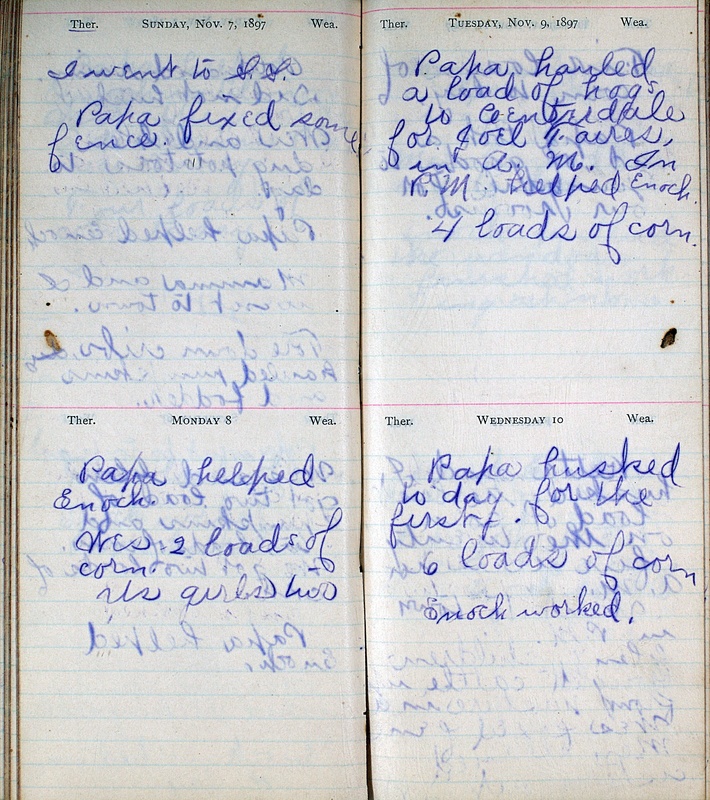 Ther. SUNDAY, NOV. 7, 1897 Wea.
I went to S.S.
Papa fixed some
fence.
Ther. MONDAY 8 Wea.
Papa helped
Enoch.
Wes. 2 loads of
corn.
Us girls two
Ther. TUESDAY, NOV. 9, 1897 Wea.
Papa hauled
a load of hogs
to
for Joel
in A. M. In
P. M. helped Enoch.
4 loads of corn.
Ther. WEDNESDAY 10 Wea.
Papa husked
to day for the
first.
6 loads of corn
Enoch worked.